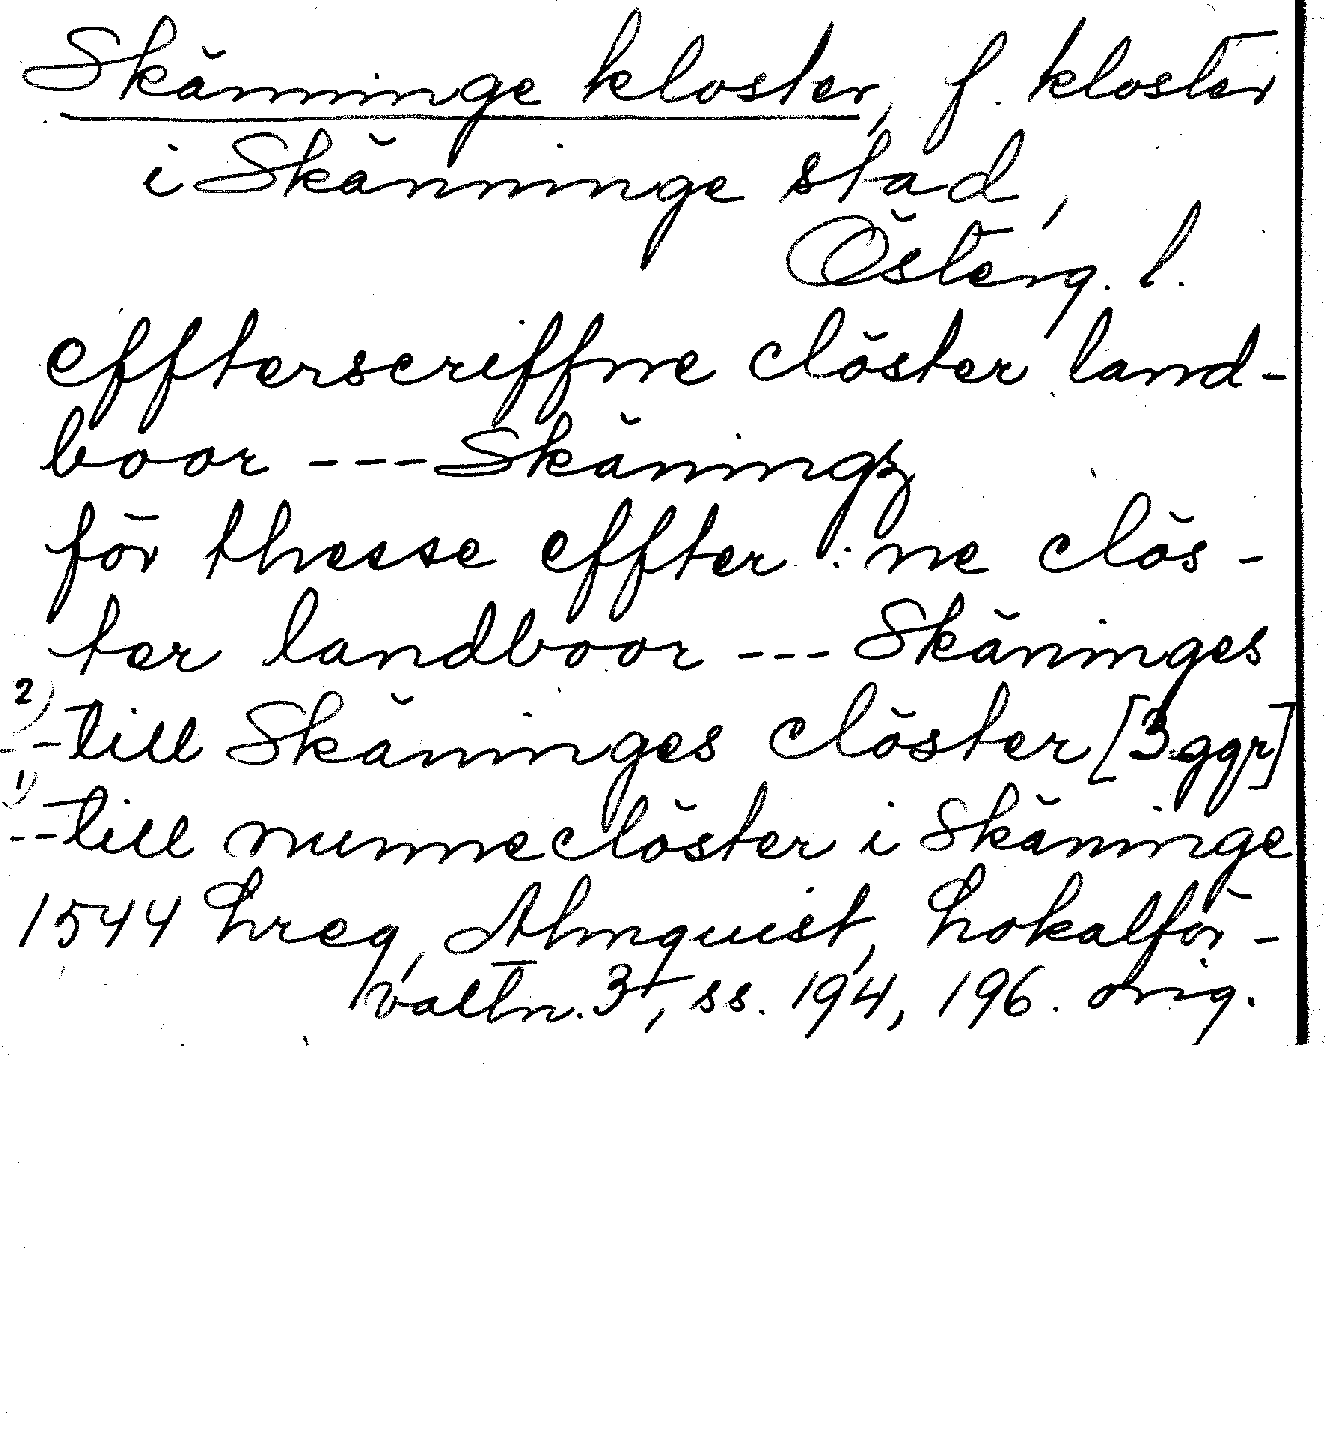 Skänninge kloster, f. kloster
i Skänninge stad,
Österg. l.
effterscriffne clöster land-
boor --- Skäningz
för thesse effter:ne clös-
ter landboor --- Skäninges
2) --till Skäninges clöster [3 ggr]
1) --till nunneclöster i Skäninge
1544 hreg, Almquist, Lokalför-
valtn. 3, ss. 194, 196. orig.